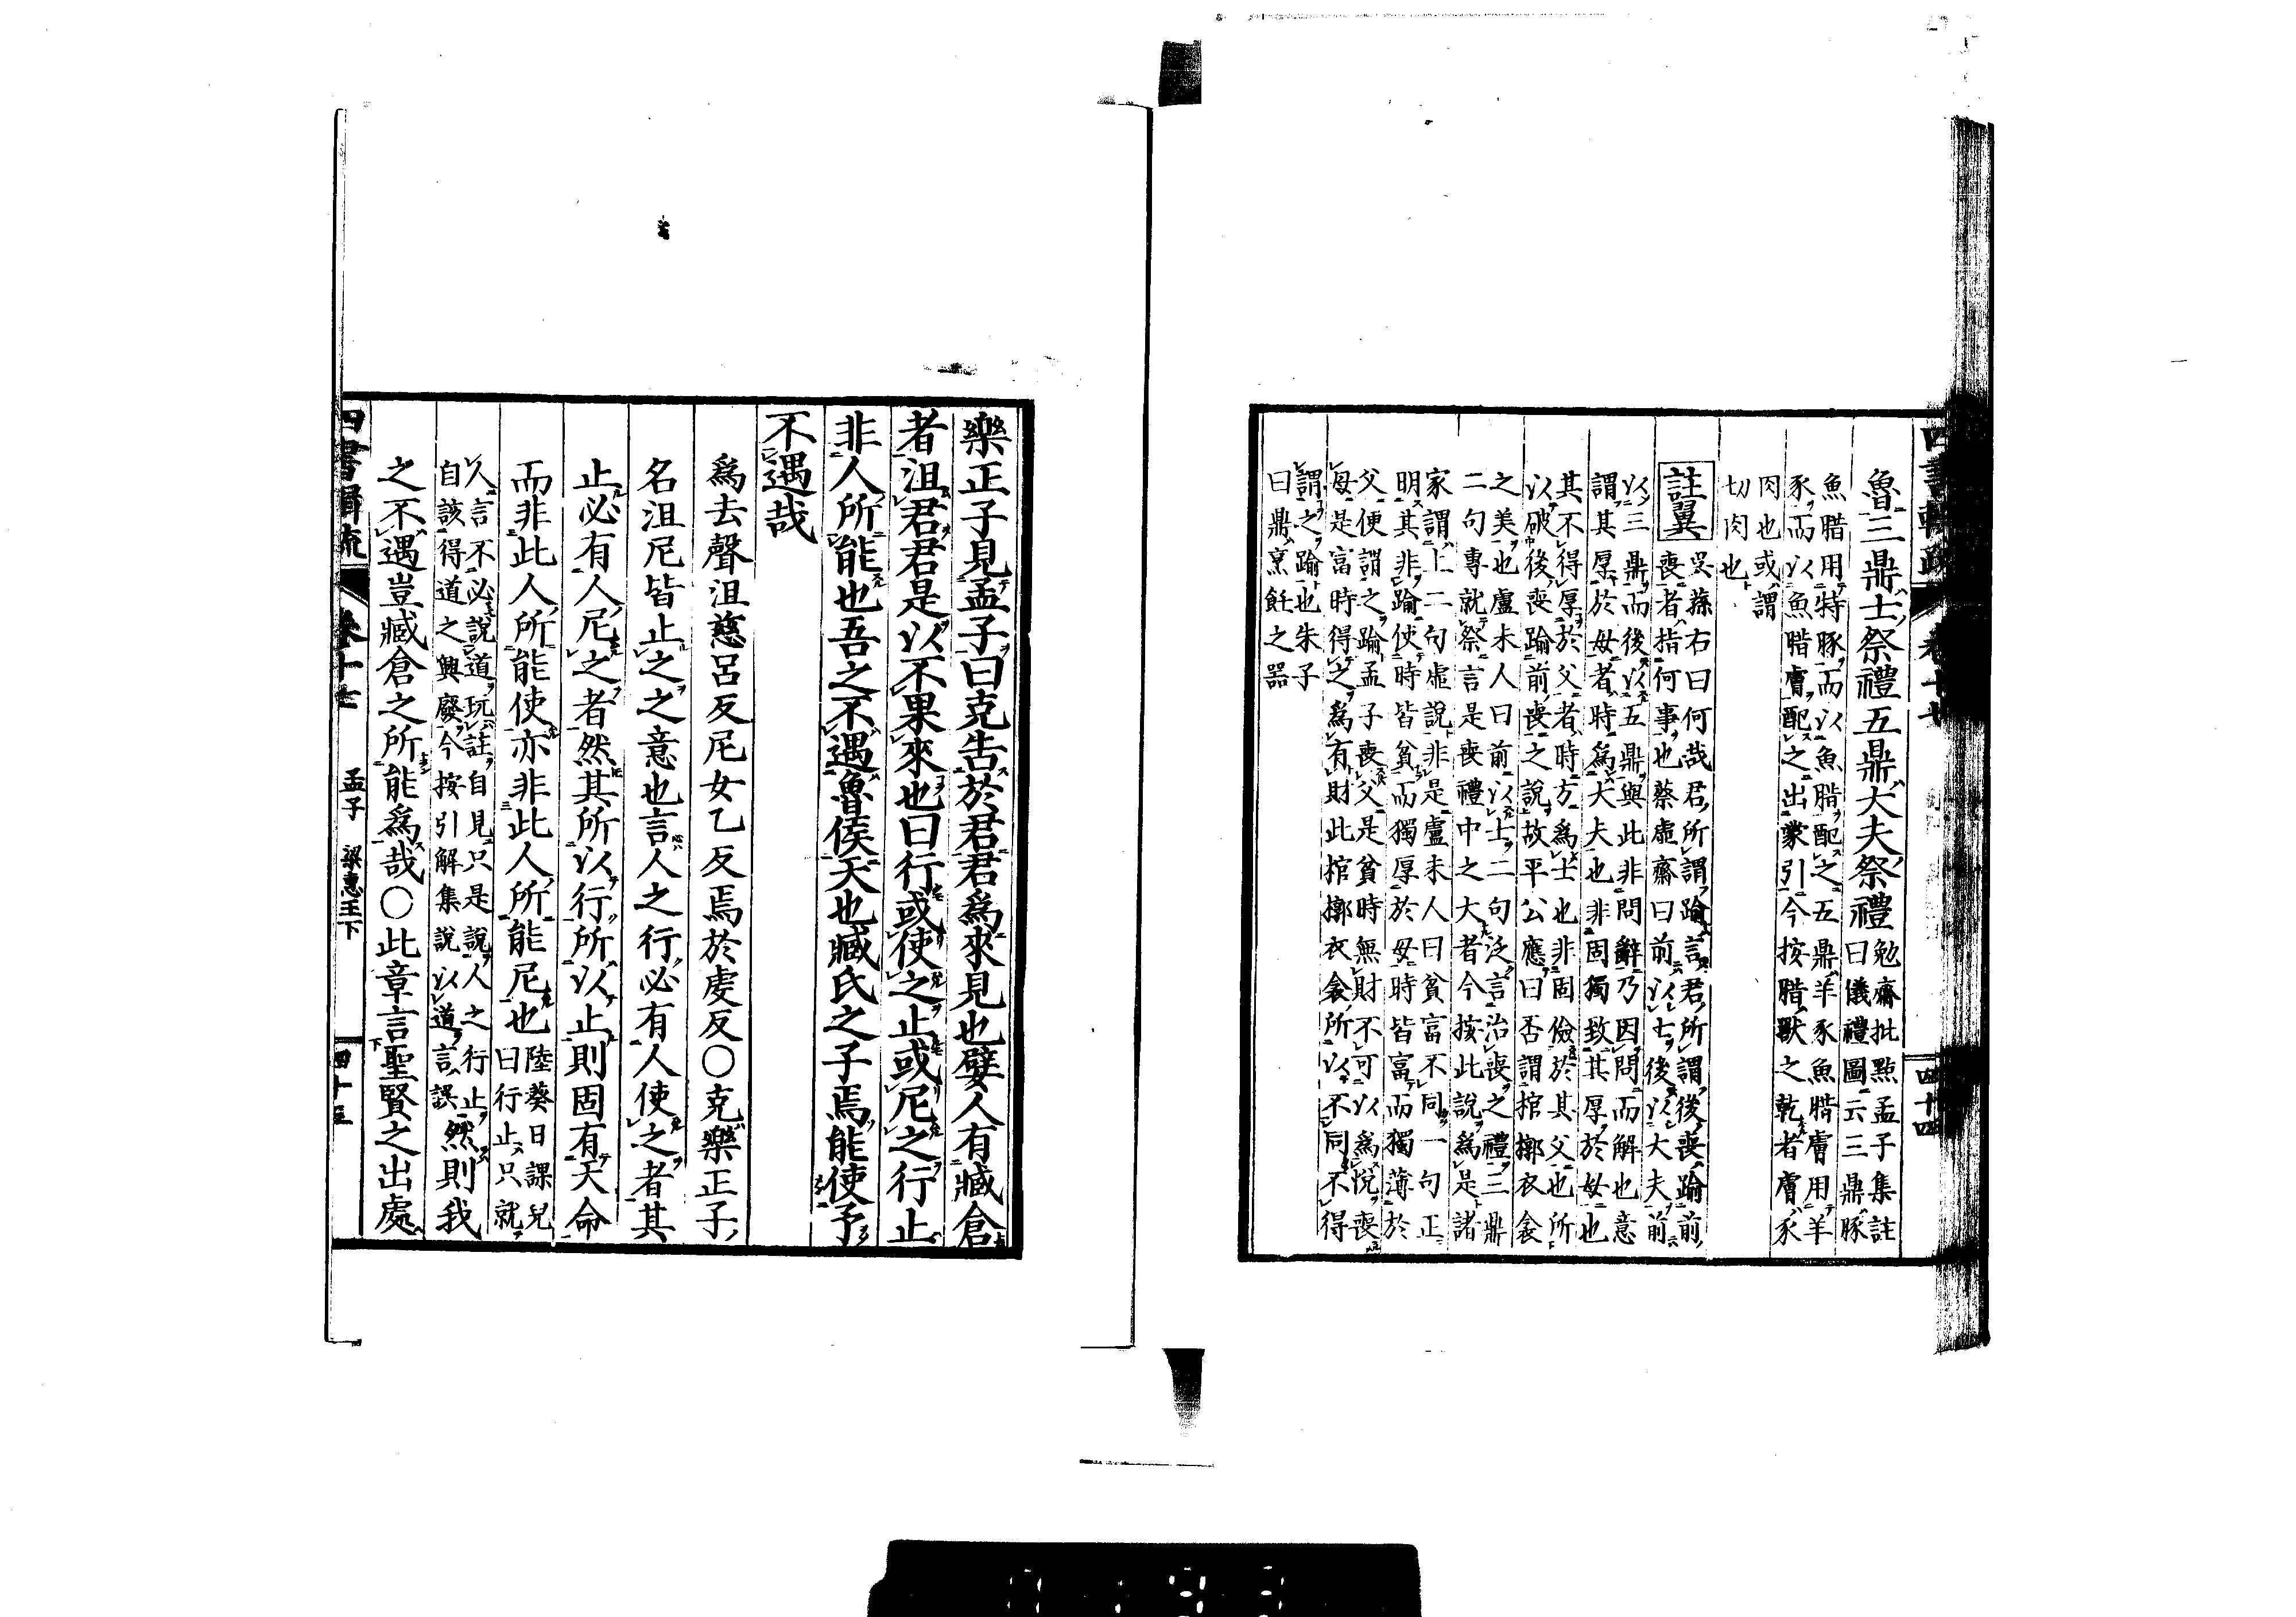 四書輯疏 卷十七 四十四
魯三鼎士祭禮五鼎大夫祭禮
勉齋批點孟子集註
曰儀禮圖云三鼎豚
魚腊用特豚而以魚腊配之五鼎羊豕魚腊膚用羊
豕而以魚腊膚配之出蒙引今按腊獸之乾者膚豕
肉也或謂
切肉也
註翼
吳蓀右曰何哉君所謂踰言君所謂後喪踰前
喪者指何事也蔡虛齋曰前以士後以大夫前
以三鼎而後以五鼎與此非問辭乃因問而解也意
謂其厚於母者時為大夫也非固獨致其厚於母也
其不得厚於父者時方為士也非固儉於其父也所
以破後喪踰前喪之說故平公應曰否謂棺槨衣衾
之美也盧未人曰前以士二句泛言治喪之禮三鼎
二句專就祭言是喪禮中之大者今按此說為是諸
家謂上二句虛說非是盧未人曰貧富不同一句正
明其非踰使時皆貧而獨厚於母時皆富而獨薄於
父便謂之踰孟子喪父是貧時無財不可以為悅喪
母是富時得之為有財此棺槨衣衾所以不同不得
謂之踰也朱子
曰鼎烹飪之器
樂正子見孟子曰克告於君君為來見也嬖人有臧倉
者沮君君是以不果來也曰行或使之止或尼之行止
非人所能也吾之不遇魯侯天也臧氏之子焉能使予
不遇哉
為去聲沮慈呂反尼女乙反焉於虔反○克樂正子
名沮尼皆止之之意也言人之行必有人使之者其
止必有人尼之者然其所以行所以止則固有天命
而非此人所能使亦非此人所能尼也
陸葵日課兒
曰行止只就
人言不必說道玩註自見只是說人之行止
自該得道之興廢今按引解集說以道言誤
然則我
之不遇豈臧倉之所能為哉○此章言聖賢之出處
四書輯疏 卷十七 孟子 梁惠王下 四十五